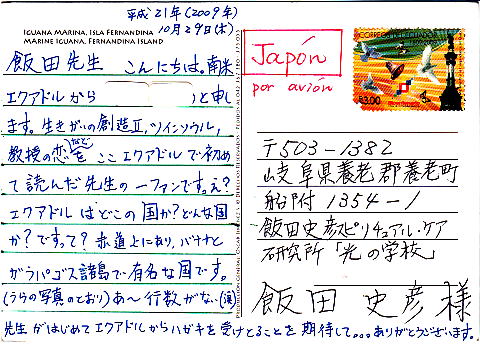 平成21年(2009年)
10月29日(木)
IGUANA MARINA, ISLA FERNANDINA
MARINE IGUANA, FERNANDINA ISLAND
飯田先生 こんにちは。南米
エクアドルから( )と申し
ます。生きがいの創造Ⅱ, ツインソウル,
教授の恋などをここエクアドルで初め
て読んだ先生の一ファンですっ。え?
エクアドルはどこの国か?どんな国
か?ですって?赤道上にあり、バナナと
ガラパゴス諸島で有名な国です。
(うらの写真のとおり)あ〜行数がない(涙)
先生がはじめてエクアドルからハガキを受けとることを期待して。。。ありがとうございます。
Japón
por avión
CORREOS DEL ECUADOR
$3.00
〒503-1382
岐阜県養老郡養老町
船附1354-1
飯田史彦スピリチュアル・ケア
研究所「光の学校」
飯田 史彦 様